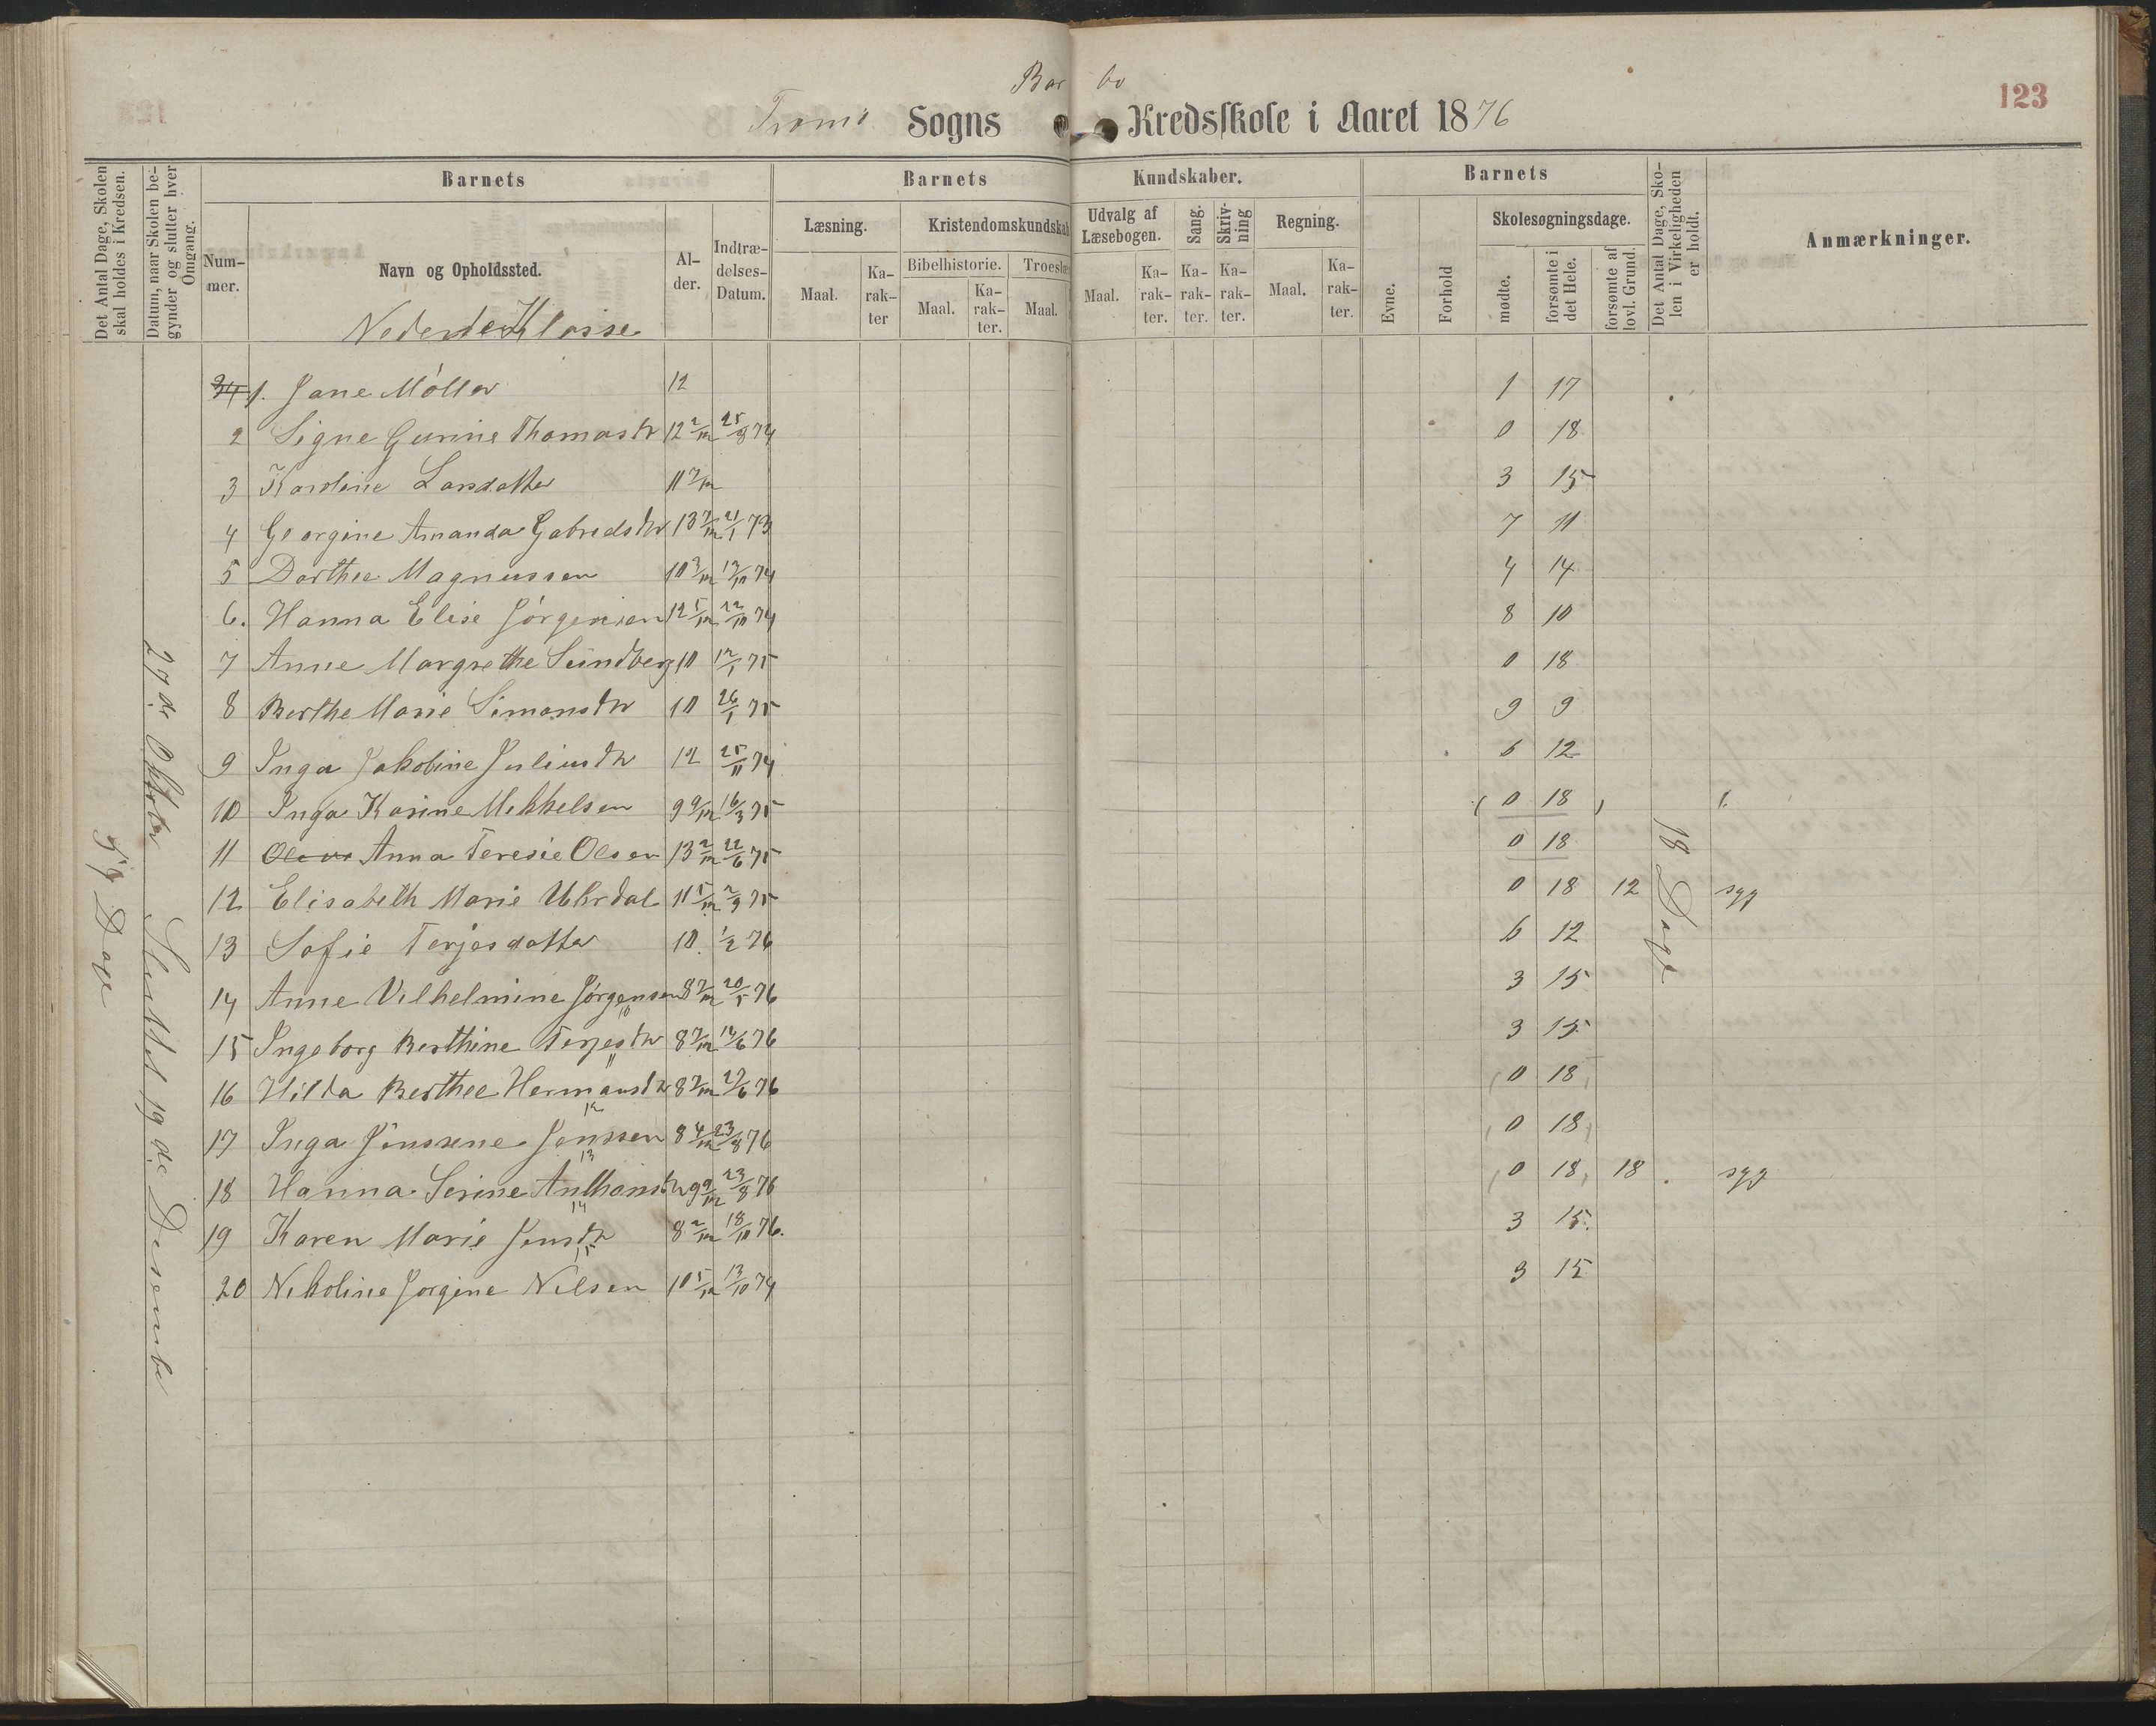 Bar bo
123
Tromø Sogns Kredsskole i Aaret 1876
Det Antal Dage, Skolen skal holdes i Kredsen.
Datum, naar Skolen begynder og slutter hver Omgang.
Barnets
Barnets Kundskaber.
Barnets
Det Antal Dage, Skolen i Virkeligheden er holdt.
Anmærkninger.
Nummer.
Navn og Opholdssted.
Alder.
Indtrædelses-Datum.
Læsning.
Kristendomskundskab
Udvalg af Læsebogen.
Sang.
Skrivning
Regning.
Skolesøgningsdage.
Bibelhistorie.
Troeslæ
Maal.
Karakter
Maal.
Karakter.
Maal.
Maal.
Karakter.
Karakter.
Karakter.
Maal.
Karakter.
Evne.
Forhold
mødte.
forsømte i det Hele.
forsømte af lovl. Grund.
Nederste Klasse
1. Jane Møller 12 1 17
2 Signe Gunine Thomasdtr 12 2/12 25/8 74 0 18
3 Karoline Larsdatter 11 7/12 3 15
4 Georgine Amanda Gabrielsdtr 13 7/12 21/1 73 7 11
5 Dorthea Magnussen 10 3/12 13/10 74 4 14
6. Hanna Elise Jörgensen 12 5/12 22/10 74 8 10
7 Anne Margrethe Sundberg 10 12/1 75 0 18
8 Berthe Marie Simonsdtr 10 26/1 75 9 9
9 Inga Jakobine Juliusdtr 12 25/11 74 6 12
10 Inga Karine Mikkelsen 9 9/12 16/3 75 ( 0 18 )
11 Anna Teresie Olsen 13 2/12 22/6 75 0 18
12 Elisabeth Marie Uhrdal 11 5/12 2/9 75 0 18 12 syg
13 Sofie Terjesdatter 10. 1/2 76 6 12
14 Anne Vilhelmine Jörgensen 8 7/12 20/5 76 3 15
10
15 Ingeborg Berthine Terjesdtr 8 7/12 14/6 76 3 15
11
16 Hilda Berthee Hermansdtr 8 7/12 27/6 76 0 18
12
17 Inga Jenssene Jenssen 8 4/12 23/8 76 0 18
13
18 Hanna Serine Anthonsdtr 9 9/12 23/8 76 0 18 18 syg
14
19 Karen Marie Jensdtr 8 2/12 18/10 76. 3 15.
15
20 Nikoline Jorgine Nilsen 10 5/12 13/10 74 3 15
27de Oktober Sluttet 19de Desembe
Dage
18 Dage